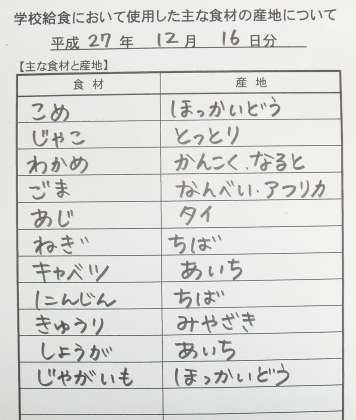 学校給食において使用した主な食材の産地について
平成 27 年 12 月 16 日分
【主な食材と産地】
食材 産地
こめ ほっかいどう
じゃこ とっとり
わかめ かんこく、なると
ごま なんべい・アフリカ
あじ タイ
ねぎ ちば
キャベツ あいち
にんじん ちば
きゅうり みやざき
しょうが あいち
じゃがいも ほっかいどう